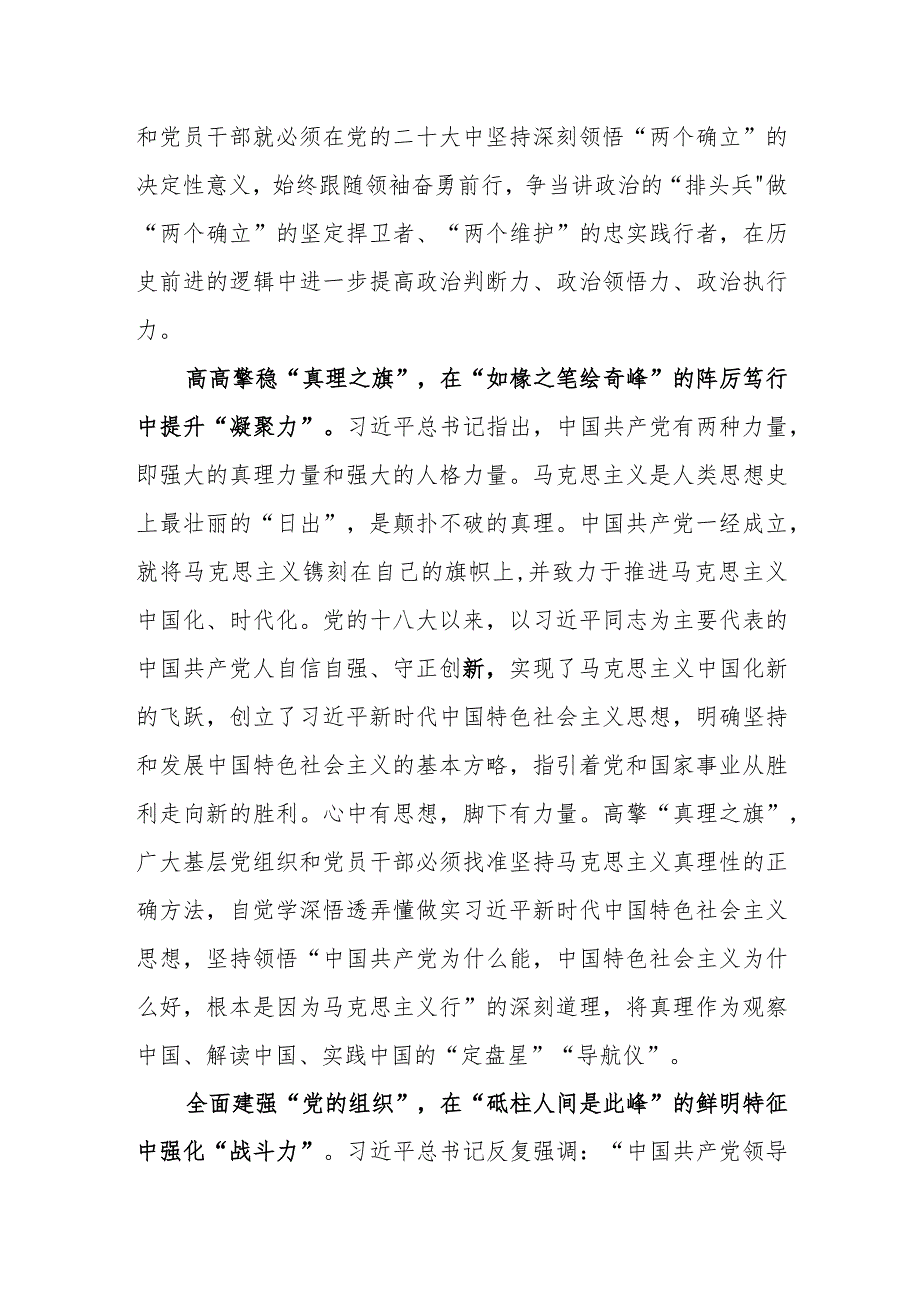 和党员干部就必须在党的二十大中坚持深刻领悟“两个确立”的
决定性意义，始终跟随领袖奋勇前行，争当讲政治的“排头兵"做
“两个确立”的坚定捍卫者、“两个维护”的忠实践行者，在历
史前进的逻辑中进一步提高政治判断力、政治领悟力、政治执行
力。
高高擎稳“真理之旗”，在“如椽之笔绘奇峰”的阵厉笃行
中提升“凝聚力”。习近平总书记指出，中国共产党有两种力量，
即强大的真理力量和强大的人格力量。马克思主义是人类思想史
上最壮丽的“日出”，是颠扑不破的真理。中国共产党一经成立，
就将马克思主义镌刻在自己的旗帜上,并致力于推进马克思主义
中国化、时代化。党的十八大以来，以习近平同志为主要代表的
中国共产党人自信自强、守正创新，实现了马克思主义中国化新
的飞跃，创立了习近平新时代中国特色社会主义思想，明确坚持
和发展中国特色社会主义的基本方略，指引着党和国家事业从胜
利走向新的胜利。心中有思想，脚下有力量。高擎“真理之旗”，
广大基层党组织和党员干部必须找准坚持马克思主义真理性的正
确方法，自觉学深悟透弄懂做实习近平新时代中国特色社会主义
思想，坚持领悟“中国共产党为什么能，中国特色社会主义为什
么好，根本是因为马克思主义行”的深刻道理，将真理作为观察
中国、解读中国、实践中国的“定盘星”“导航仪”。
全面建强“党的组织”，在“砥柱人间是此峰”的鲜明特征
中强化“战斗力”。习近平总书记反复强调：“中国共产党领导